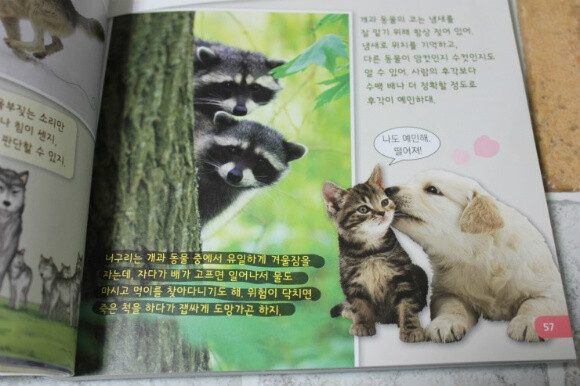 울부짖는 소리만
나 힘이 센지,
판단할 수 있지.
너구리는 개과 동물 중에서 유일하게 겨울잠을
자는데, 자다가 배가 고프면 일어나서 물도
마시고 먹이를 찾아다니기도 해. 위험이 닥치면
죽은 척을 하다가 잽싸게 도망가곤 하지.
개과 동물의 코는 냄새를
잘 맡기 위해 항상 젖어 있어.
냄새로 위치를 기억하고,
다른 동물이 암컷인지 수컷인지도
알 수 있어. 사람의 후각보다
수백 배나 더 정확할 정도로
후각이 예민하대.
나도 예민해.
떨어져!
57